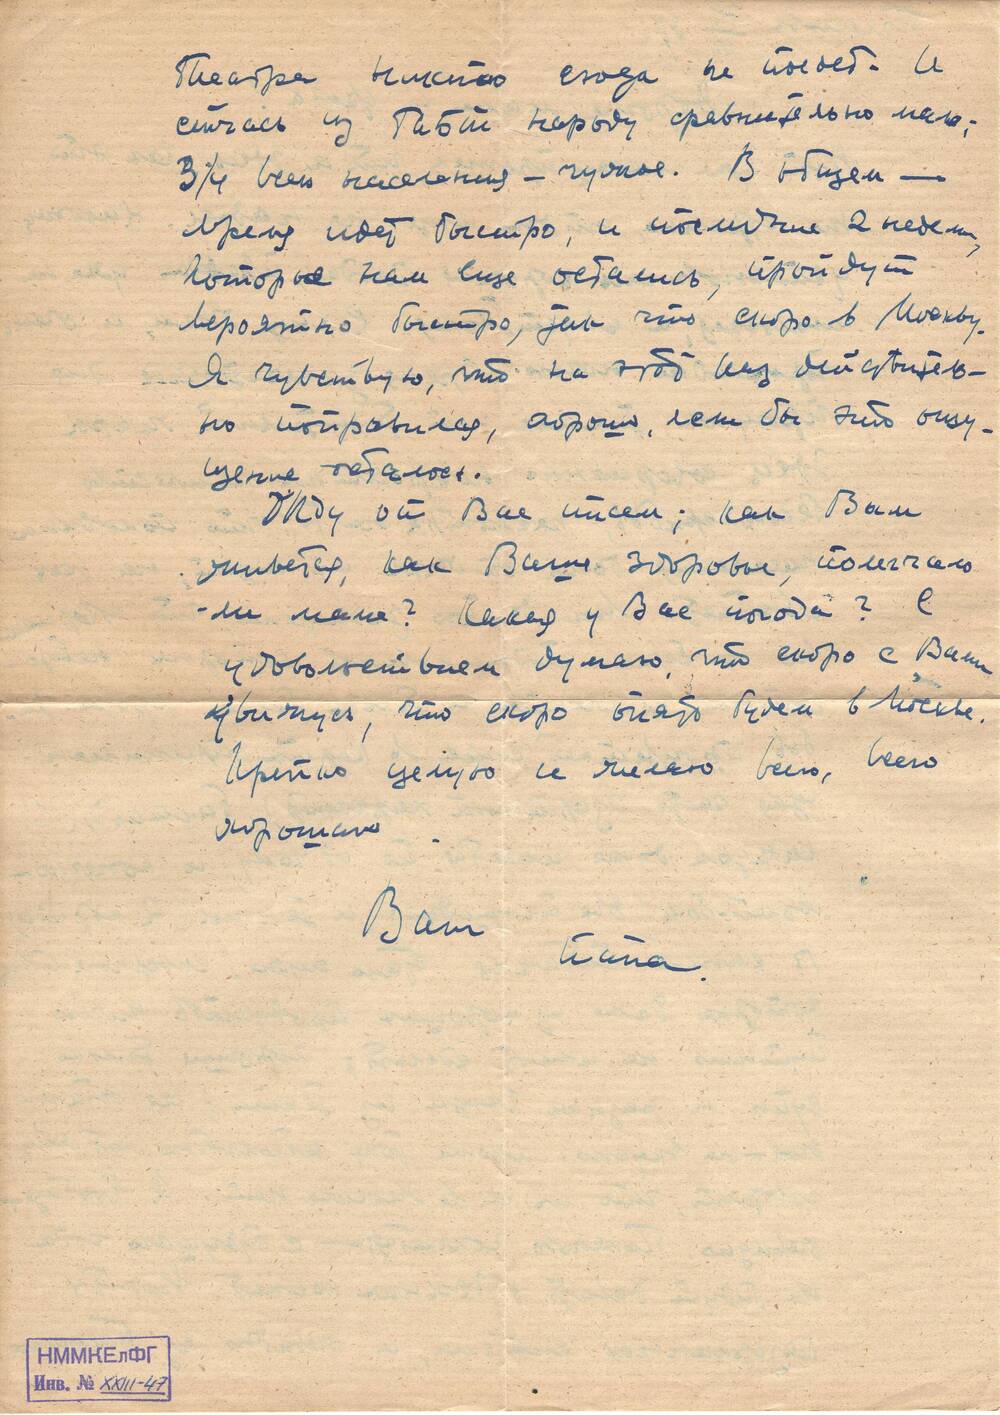 Театра никто сюда не поедет. И
сейчас из ГАБТ народу сравнительно мало;
3/4 всего населения – чужое. В общем —
время идет быстро, и последние 2 недели,
которые нам еще остались, пройдут
вероятно быстро, так что скоро в Москву.
Я чувствую, что на этот раз действитель-
но поправился, хорошо, если бы это ощу-
щение осталось.
Жду от Вас писем; как Вам
живется, как Ваше здоровье, полегчало
-ли маме? Какая у Вас погода? С
удовольствием думаю, что скоро с Вами
увижусь, что скоро опять будем в Москве.
Крепко целую и желаю всего, всего
хорошего.
Ваш
папа.
НММКЕлФГ
Инв. № XXIII-47